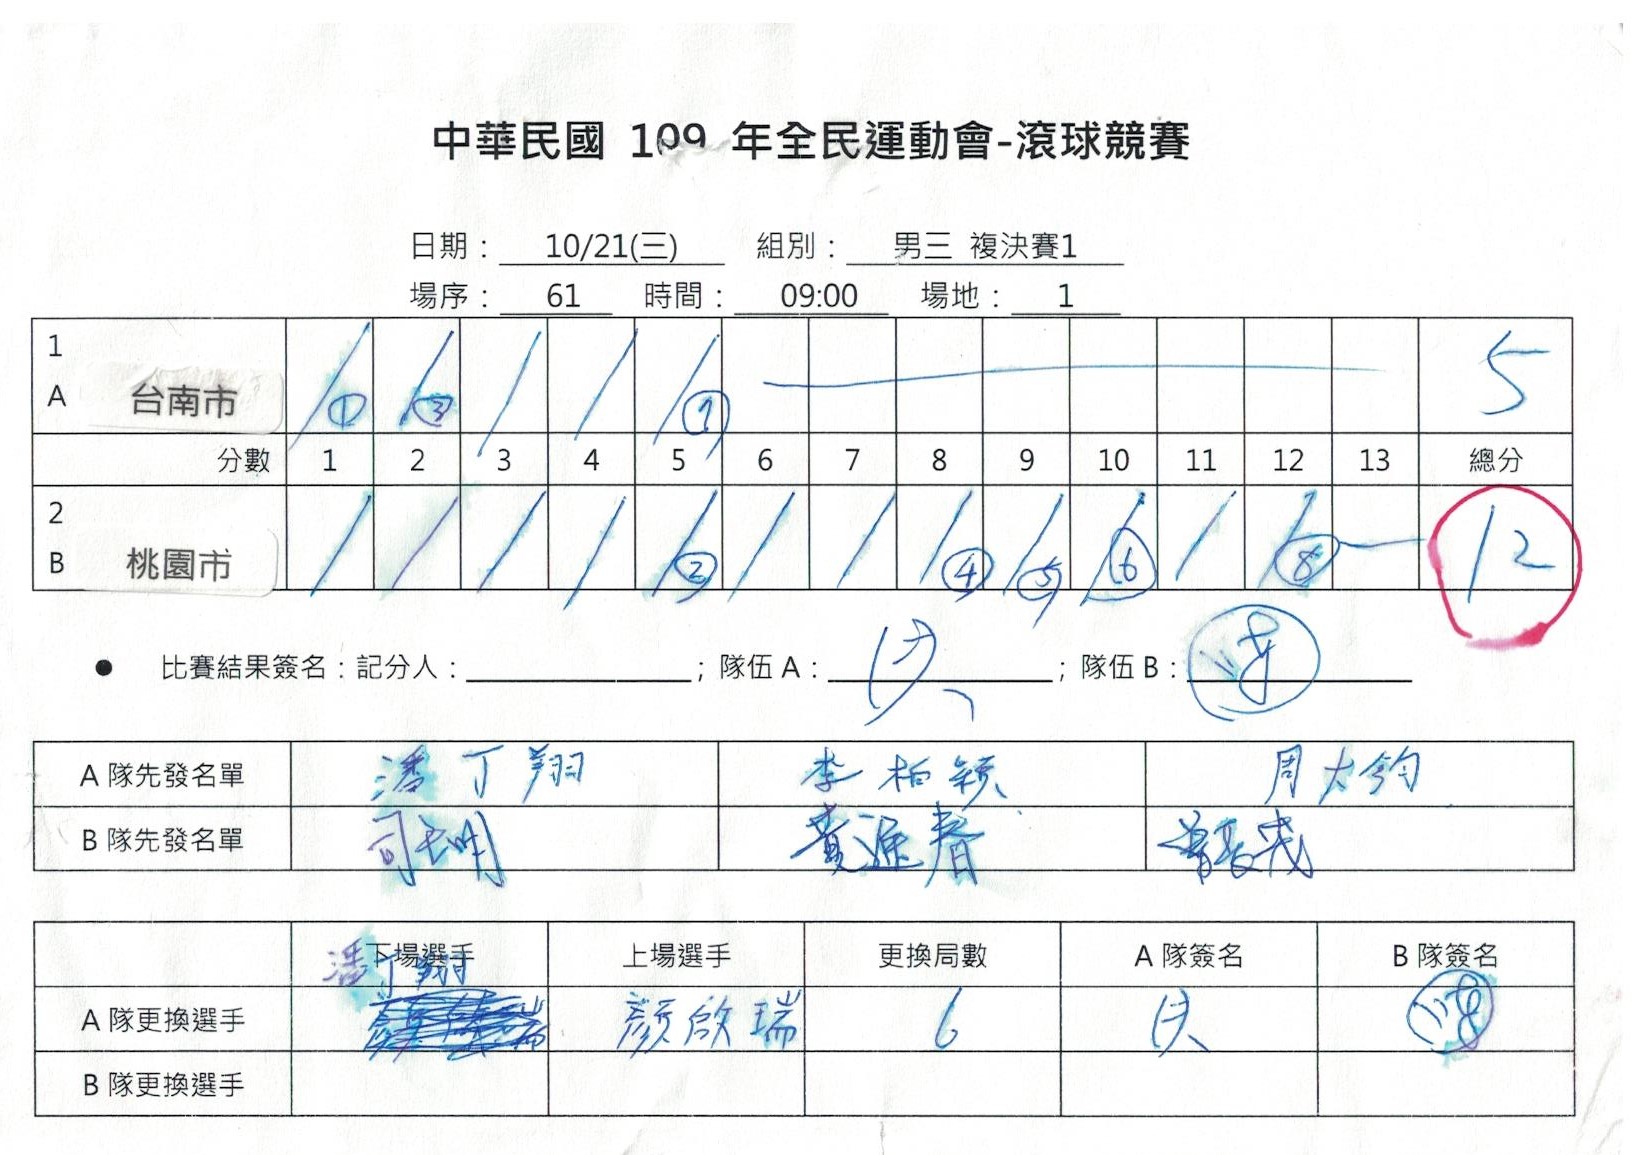 中華民國 109 年全民運動會-滾球競賽
日期： 10/21(三) 組別： 男三 複決賽1
場序： 61 時間： 09:00 場地： 1
1
A 台南市 ① ③ ⑦ 5
分數 1 2 3 4 5 6 7 8 9 10 11 12 13 總分
2
B 桃園市 ② ④ ⑤ ⑥ ⑧ 12
● 比賽結果簽名：記分人： ；隊伍 A： ；隊伍 B：
A 隊先發名單 潘丁翔 李柏穎 周大鈞
B 隊先發名單 黃進春
下場選手 上場選手 更換局數 A 隊簽名 B 隊簽名
潘丁翔
A 隊更換選手 顏啟瑞 6
B 隊更換選手